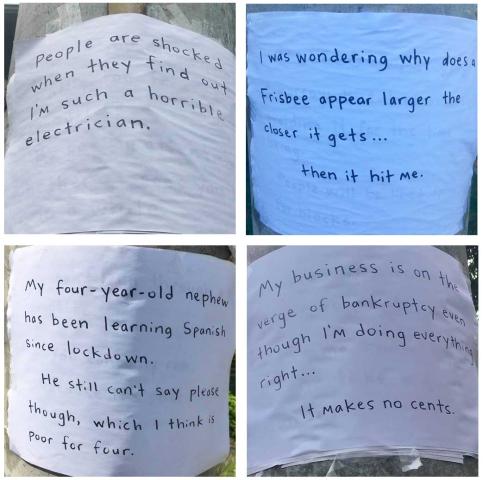 People are shocked
when they find out
I'm such a horrible
electrician.
I was wondering why does a
Frisbee appear larger the
closer it gets...
then it hit me.
My four-year-old nephew
has been learning Spanish
since lockdown.
He still can't say please
though, which I think is
poor for four.
My business is on the
verge of bankruptcy even
though I'm doing everything
right...
It makes no cents.